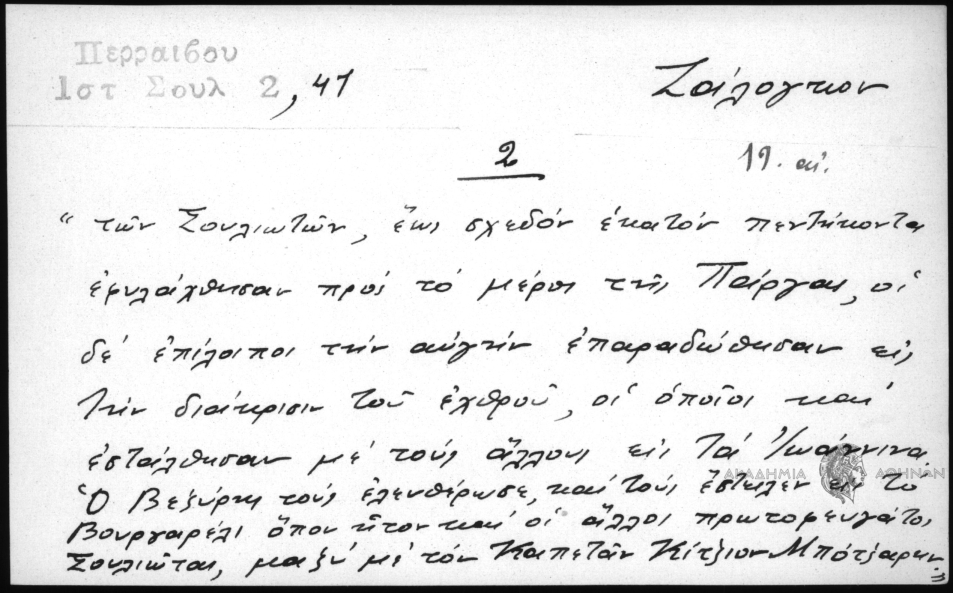 Περραιβου
Ιστ Σουλ 2, 41
Ζάλογγον
2
19. αἰ.
" τῶν Σουλιωτῶν, ἕως σχεδόν ἑκατόν πεντήκοντα
ἐφυλάχθησαν πρός τό μέρος τῆς Πάργας, οἱ
δέ ἐπίλοιποι τήν αὐγήν ἐπαραδώθησαν εἰς
τήν διάκρισιν τοῦ ἐχθροῦ, οἱ ὁποῖοι καί
ἐστάλθησαν μέ τούς ἄλλους εἰς τά Ἰωάννινα
ΑΚΑΔΗΜΙΑ ΑΘΗΝΩΝ
Ὁ Βεζύρης τούς ἐλευθέρωσε, καί τούς ἔστειλεν εἰς τό
Βουργαρέλι ὅπου ἦτον καί οἱ ἄλλοι πρωτοφευγάτοι
Σουλιῶται, μαζύ μέ τόν Καπετάν Κίτζιον Μπότζαρην